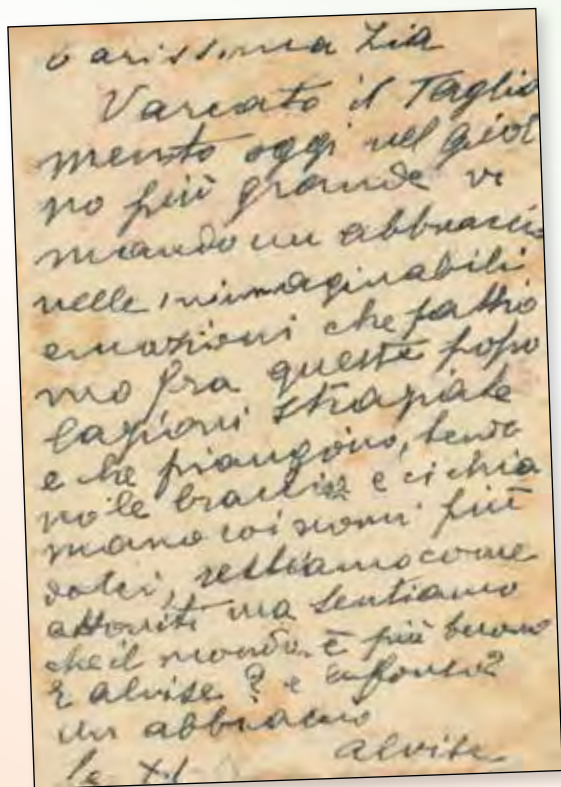 Carissima Zia
Varcato il Taglia
mento oggi nel gior
no più grande vi
mando un abbraccio
nelle inimmaginabili
emozioni che
mo fra queste popo
lazioni straziate
e che piangono, tendo
no le braccia e ci chia
mano coi nomi più
dolci, restiamo come
attoniti ma sentiamo
che il mondo è più buono
E alvise? e
un abbraccio
alvise